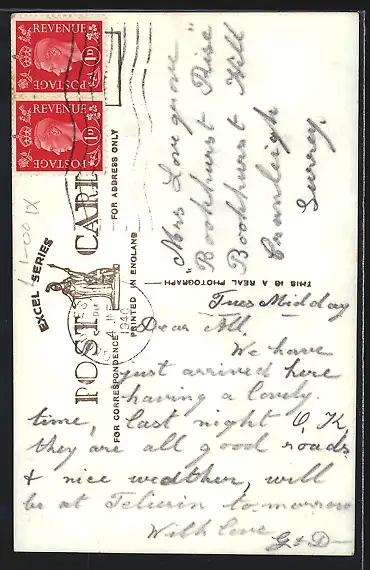 REVENUE
1D
POSTAGE
REVENUE
1D
POSTAGE
1-00 IX
EXCEL SERIES
POST CARD
FOR CORRESPONDENCE
FOR ADDRESS ONLY
PRINTED IN ENGLAND
THIS IS A REAL PHOTOGRAPH
4 JNE
1940
Mrs Lovegrove
"Bookhurst Rise"
Bookhurst Hill
Cranleigh
Surrey.
Tues Midday
Dear All.
We have
just arrived here
having a lovely.
time, last night O, K,
they are all good roads
& nice weather, will
be at tomorrow
With love
G & D